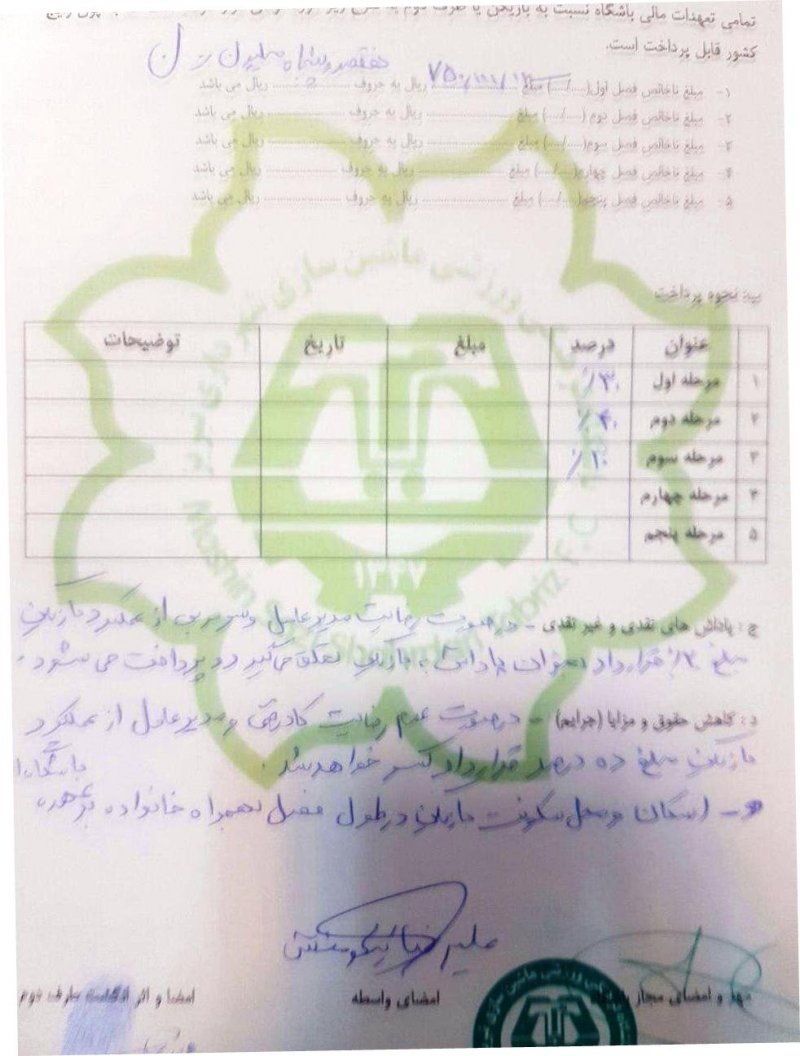 تمامی تعهدات مالی باشگاه نسبت به بازیکن یا طرف دوم به شرح زیر
کشور قابل پرداخت است.
هفتصد و پنجاه میلیون
۱- مبلغ ناخالص فصل اول(..../....) مبلغ ۷۵۰/۰۰۰/۰۰۰ ریال به حروف .................. ریال می باشد
۲- مبلغ ناخالص فصل دوم (..../....) مبلغ .................. ریال به حروف .................. ریال می باشد
۳- مبلغ ناخالص فصل سوم(..../....) مبلغ .................. ریال به حروف .................. ریال می باشد
۴- مبلغ ناخالص فصل چهارم(..../....) مبلغ .................. ریال به حروف .................. ریال می باشد
۵- مبلغ ناخالص فصل پنجم(..../....) مبلغ .................. ریال به حروف .................. ریال می باشد
ب: نحوه پرداخت
عنوان درصد مبلغ تاریخ توضیحات
۱ مرحله اول ٪۳۰
۲ مرحله دوم ٪۴۰
۳ مرحله سوم ٪۱۰
۴ مرحله چهارم
۵ مرحله پنجم
ماشین سازی
Mashin Tabriz F.C
۱۳۴۷
ج: پاداش های نقدی و غیر نقدی - در صورت رضایت مدیرعامل و سرمربی از عملکرد بازیکن
مبلغ قرارداد بعنوان پاداش به بازیکن تعلق می‌گیرد و پرداخت می شود.
د: کاهش حقوق و مزایا (جرایم) - در صورت عدم رضایت کادرفنی و مدیرعامل از عملکرد
بازیکن مبلغ ده درصد قرارداد کسر خواهد شد.
- اسکان و محل سکونت بازیکن در طول فصل بهمراه خانواده بر عهده باشگاه
علیرضا نیکومنش
مهر و امضای مجاز باشگاه امضای واسطه امضا و اثر انگشت طرف دوم